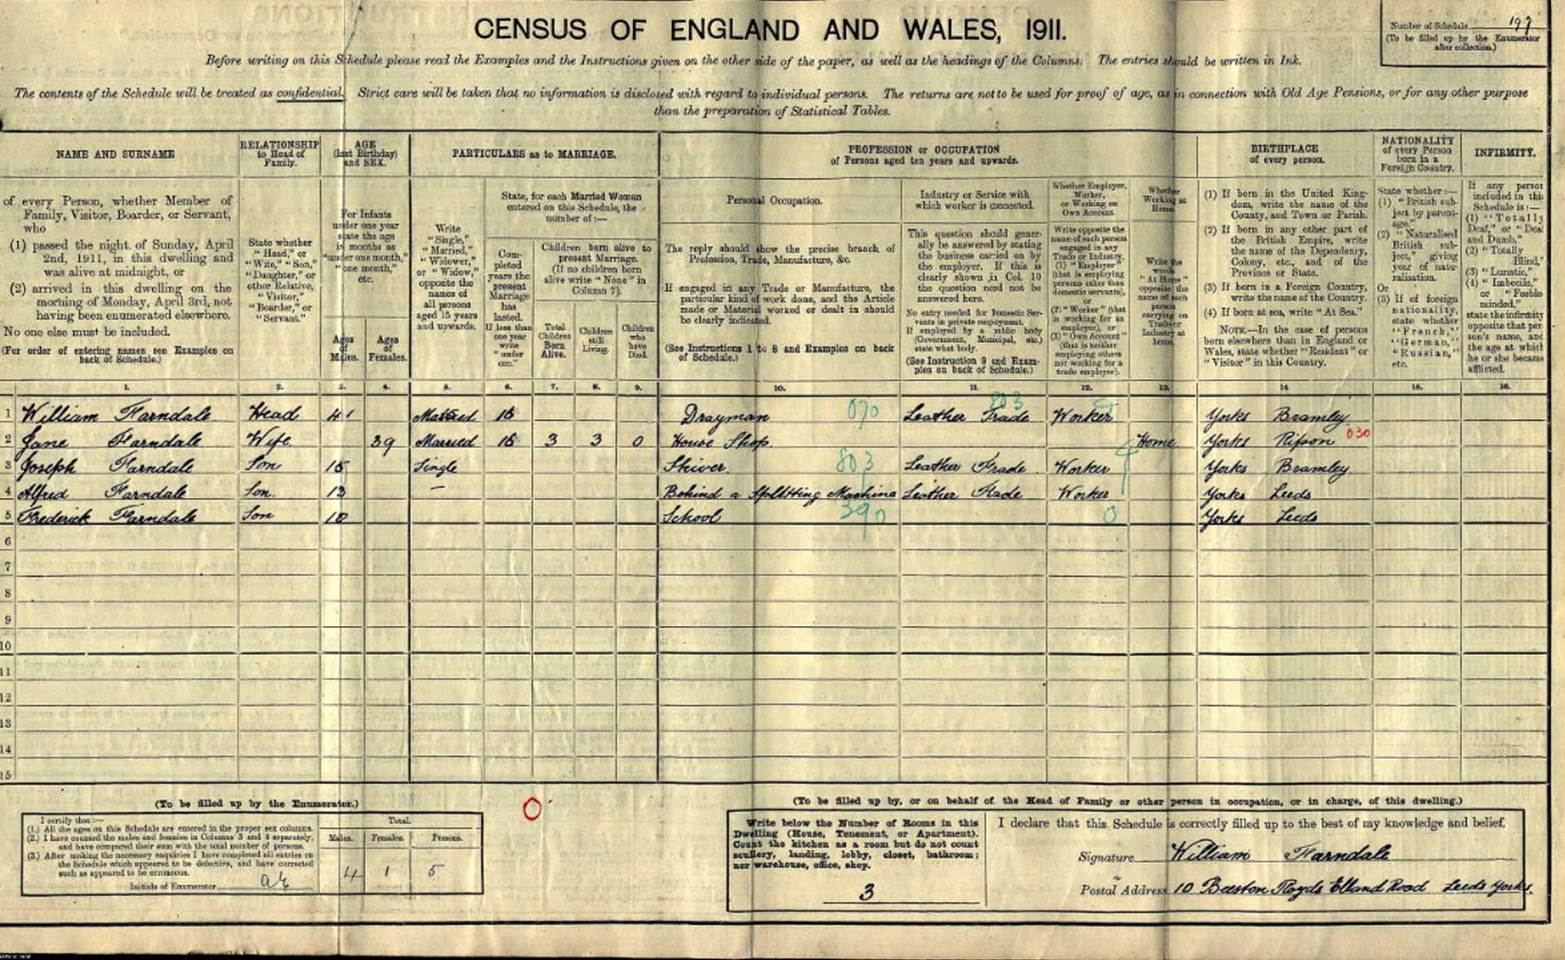 CENSUS OF ENGLAND AND WALES, 1911.
Number of Schedule 197
(To be filled up by the Enumerator
after collection.)
Before writing on this Schedule please read the Examples and the Instructions given on the other side of the paper, as well as the headings of the Columns. The entries should be written in Ink.
The contents of the Schedule will be treated as confidential. Strict care will be taken that no information is disclosed with regard to individual persons. The returns are not to be used for proof of age, as in connection with Old Age Pensions, or for any other purpose
than the preparation of Statistical Tables.
NAME AND SURNAME
of every Person, whether Member of
Family, Visitor, Boarder, or Servant,
who
(1) passed the night of Sunday, April
2nd, 1911, in this dwelling and
was alive at midnight, or
(2) arrived in this dwelling on the
morning of Monday, April 3rd, not
having been enumerated elsewhere.
No one else must be included.
(For order of entering names see Examples on
back of Schedule.)
RELATIONSHIP
to Head of
Family.
State whether
"Head," or
"Wife," "Son,"
"Daughter," or
other Relative,
"Visitor,"
"Boarder," or
"Servant."
AGE
(last Birthday)
and SEX.
For Infants
under one year
state the age
in months as
"under one month,"
"one month,"
etc.
Ages
of
Males.
Ages
of
Females.
PARTICULARS as to MARRIAGE.
Write
"Single,"
"Married,"
"Widower,"
or "Widow,"
opposite the
names of
all persons
aged 15 years
and upwards.
State, for each Married Woman
entered on this Schedule, the
number of:—
Com-
pleted
years the
present
Marriage
has
lasted.
If less than
one year
write
"under
one."
Children born alive to
present Marriage.
(If no children born
alive write "None" in
Column 7).
Total
Children
Born
Alive.
Children
still
Living.
Children
who
have
Died.
PROFESSION or OCCUPATION
of Persons aged ten years and upwards.
Personal Occupation.
The reply should show the precise branch of
Profession, Trade, Manufacture, &c.
If engaged in any Trade or Manufacture, the
particular kind of work done, and the Article
made or Material worked or dealt in should
be clearly indicated.
(See Instructions 1 to 8 and Examples on back
of Schedule.)
Industry or Service with
which worker is connected.
This question should gener-
ally be answered by stating
the business carried on by
the employer. If this is
clearly shown in Col. 10
the question need not be
answered here.
No entry needed for Domestic Ser-
vants in private employment.
If employed by a public body
(Government, Municipal, etc.)
state what body.
(See Instruction 9 and Exam-
ples on back of Schedule.)
Whether Employer,
Worker,
or Working on
Own Account.
Write opposite the
name of each person
engaged in any
Trade or Industry,
(1) "Employer"
(that is employing
persons other than
domestic servants),
or
(2) "Worker" (that
is working for an
employer), or
(3) "Own Account"
(that is neither
employing others
nor working for a
trade employer).
Whether
Working at
Home.
Write the
words
"At Home"
opposite the
name of each
person
carrying on
Trade or
Industry at
home.
BIRTHPLACE
of every person.
(1) If born in the United King-
dom, write the name of the
County, and Town or Parish.
(2) If born in any other part of
the British Empire, write
the name of the Dependency,
Colony, etc., and of the
Province or State.
(3) If born in a Foreign Country,
write the name of the Country.
(4) If born at sea, write "At Sea."
NOTE.—In the case of persons
born elsewhere than in England or
Wales, state whether "Resident" or
"Visitor" in this Country.
NATIONALITY
of every Person
born in a
Foreign Country.
State whether:—
(1) "British sub-
ject by parent-
age."
(2) "Naturalised
British sub-
ject," giving
year of natu-
ralisation.
Or
(3) If of foreign
nationality,
state whether
"French,"
"German,"
"Russian,"
etc.
INFIRMITY.
If any person
included in this
Schedule is:—
(1) "Totally
Deaf," or "Deaf
and Dumb,"
(2) "Totally
Blind,"
(3) "Lunatic,"
(4) "Imbecile,"
or "Feeble-
minded,"
state the infirmity
opposite that per-
son's name, and
the age at which
he or she became
afflicted.
1. 2. 3. 4. 5. 6. 7. 8. 9. 10. 11. 12. 13. 14 15. 16.
1 William Farndale Head 41 Married 16 Drayman 070 Leather Trade 803 Worker Yorks Bramley
2 Jane Farndale Wife 39 Married 16 3 3 0 House Shop Home Yorks Ripon 030
3 Joseph Farndale Son 15 Single Skiver. 803 Leather Trade Worker Yorks Bramley
4 Alfred Farndale Son. 13 — Behind a Splitting Machine Leather Trade Worker Yorks Leeds
5 Frederick Farndale Son 10 School 390 0 Yorks Leeds
6
7
8
9
10
11
12
13
14
15
(To be filled up by the Enumerator.)
I certify that:—
(1.) All the ages on this Schedule are entered in the proper sex columns.
(2.) I have counted the males and females in Columns 3 and 4 separately,
and have compared their sum with the total number of persons.
(3.) After making the necessary enquiries I have completed all entries on
the Schedule which appeared to be defective, and have corrected
such as appeared to be erroneous.
Initials of Enumerator
Total.
Males. Females. Persons.
4 1 5
(To be filled up by, or on behalf of, the Head of Family or other person in occupation, or in charge, of this dwelling.)
Write below the Number of Rooms in this
Dwelling (House, Tenement, or Apartment).
Count the kitchen as a room but do not count
scullery, landing, lobby, closet, bathroom;
nor warehouse, office, shop.
3
I declare that this Schedule is correctly filled up to the best of my knowledge and belief.
Signature William Farndale
Postal Address 10 Beeston Royds Elland Road Leeds Yorks